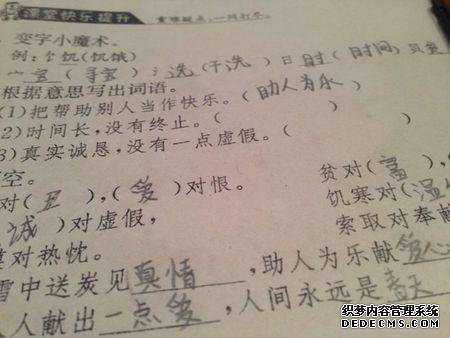 课堂快乐提升 重难疑点,一网打尽。
变字小魔术。
例:饣饥(饥饿)
选(干选) 日时(时间) 贝
根据意思写出词语。
(1)把帮助别人当作快乐。(助人为乐)
2)时间长,没有终止。( )
3)真实诚恳,没有一点虚假。( )
空。
对(丑),(爱)对恨。 贫对(富),
诚)对虚假, 饥寒对(温
对热忱。 索取对奉献
雪中送炭见真情,助人为乐献爱心
人献出一点爱,人间永远是春天
织梦内容管理系统
DEDECMS.COM